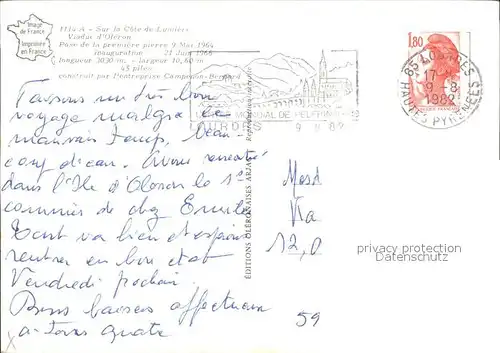 Image
de France
Imprimée
en France
1114-A - Sur la Côte de Lumière
Viaduc d'Oléron
Pose de la première pierre 9 Mai 1964
inauguration 21 Juin 1966
longueur 3030 m. - largeur 10,60 m
45 piles
construit par l'entreprise Campenon-Bernard
MONDIAL DE PELERINAGES
LOURDES 9 8 82
1,80
65 LOURDES
17
9-8
1982
HAUTES PYRENEES
EDITIONS OLERONAISES ARJAC
Faisons un très bon
voyage malgré le
mauvais temps, beau-
coup d'eau. Avons rencontré
dans l'Ile d'Oléron le 1er
commis de chez Emile
Tout va bien et
rentrer en bon état
Vendredi prochain
Bons baisers affectueux
a tous quatre
Mesd
Via
12,0
59
privacy protection
Datenschutz